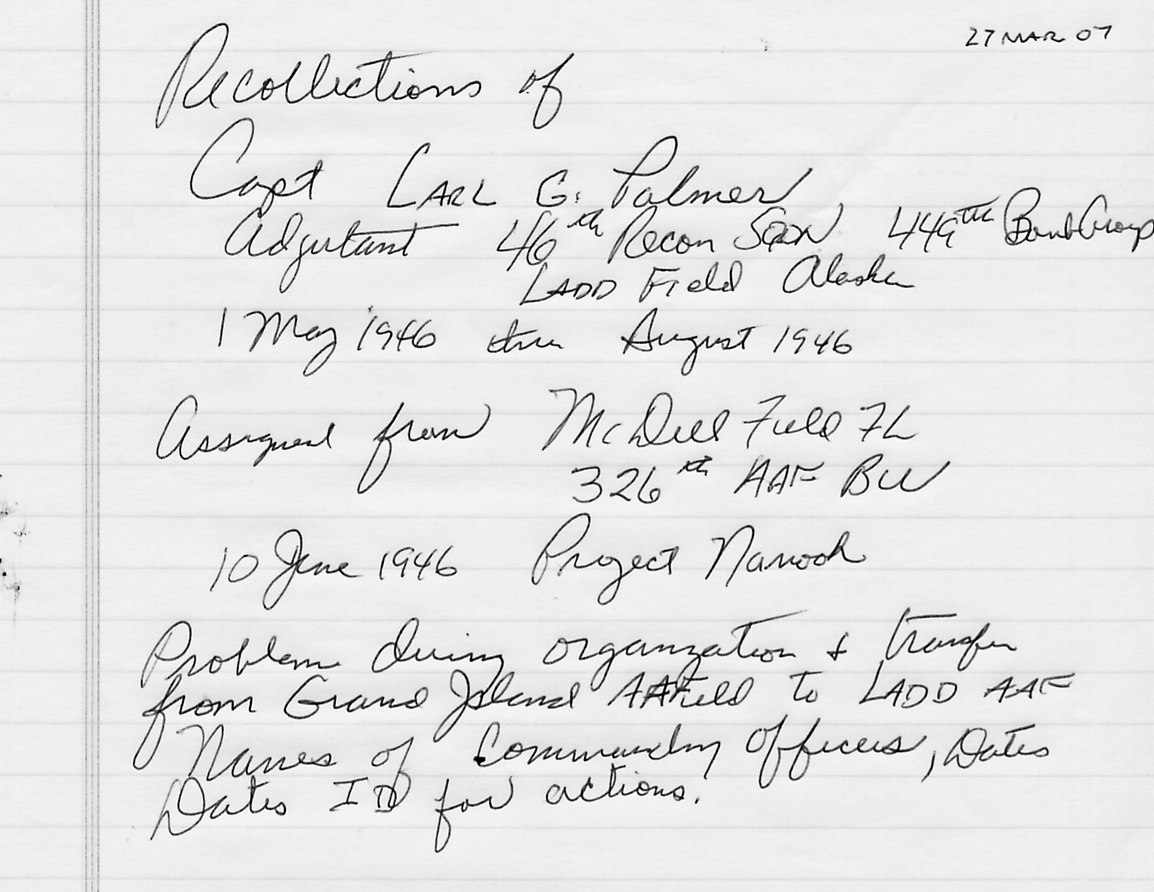 27 MAR 07
Recollections of
Capt CARL G. Palmer
Adjutant 46th Recon SQDN 449th Bomb Group
LADD Field Alaska
1 May 1946 thru August 1946
Assigned from McDill Field FL
326th AAF BU
10 June 1946 Project Nanook
Problem during organization & transfer
from Grand Island AAField to LADD AAF
Names of Commanding Officers, Dates
Dates ID for actions.